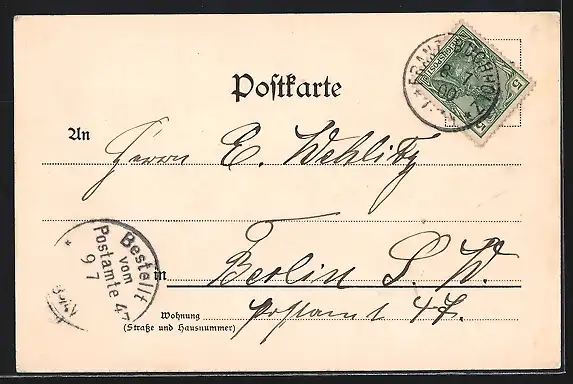 FRANZ. BUCHHOLZ
8 7
00
5
5
Postkarte
An Herrn E. Wehlitz
in Berlin S. W.
Postamt 47.
Bestellt
vom
Postamte 47
9 7
Wohnung
(Straße und Hausnummer)